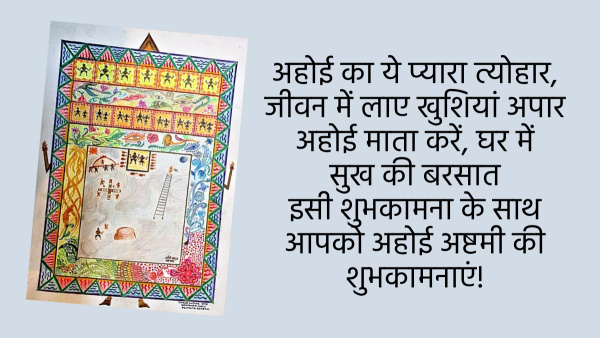 अहोई का ये प्यारा त्योहार,
जीवन में लाए खुशियां अपार
अहोई माता करें, घर में
सुख की बरसात
इसी शुभकामना के साथ
आपको अहोई अष्टमी की
शुभकामनाएं!